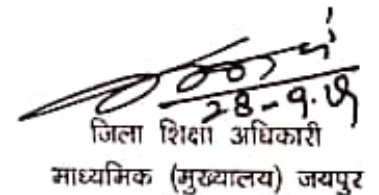 जिला शिक्षा अधिकारी
माध्यमिक (मुख्यालय) जयपुर